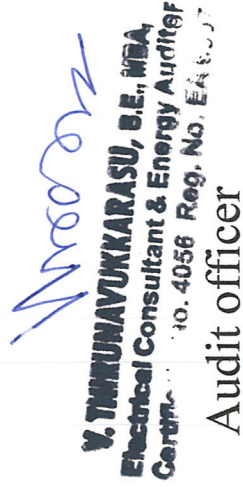 V. THIRUNAVUKKARASU, B.E., MBA,
Electrical Consultant & Energy Auditor
No. 4056 Reg. No. EA
Audit officer